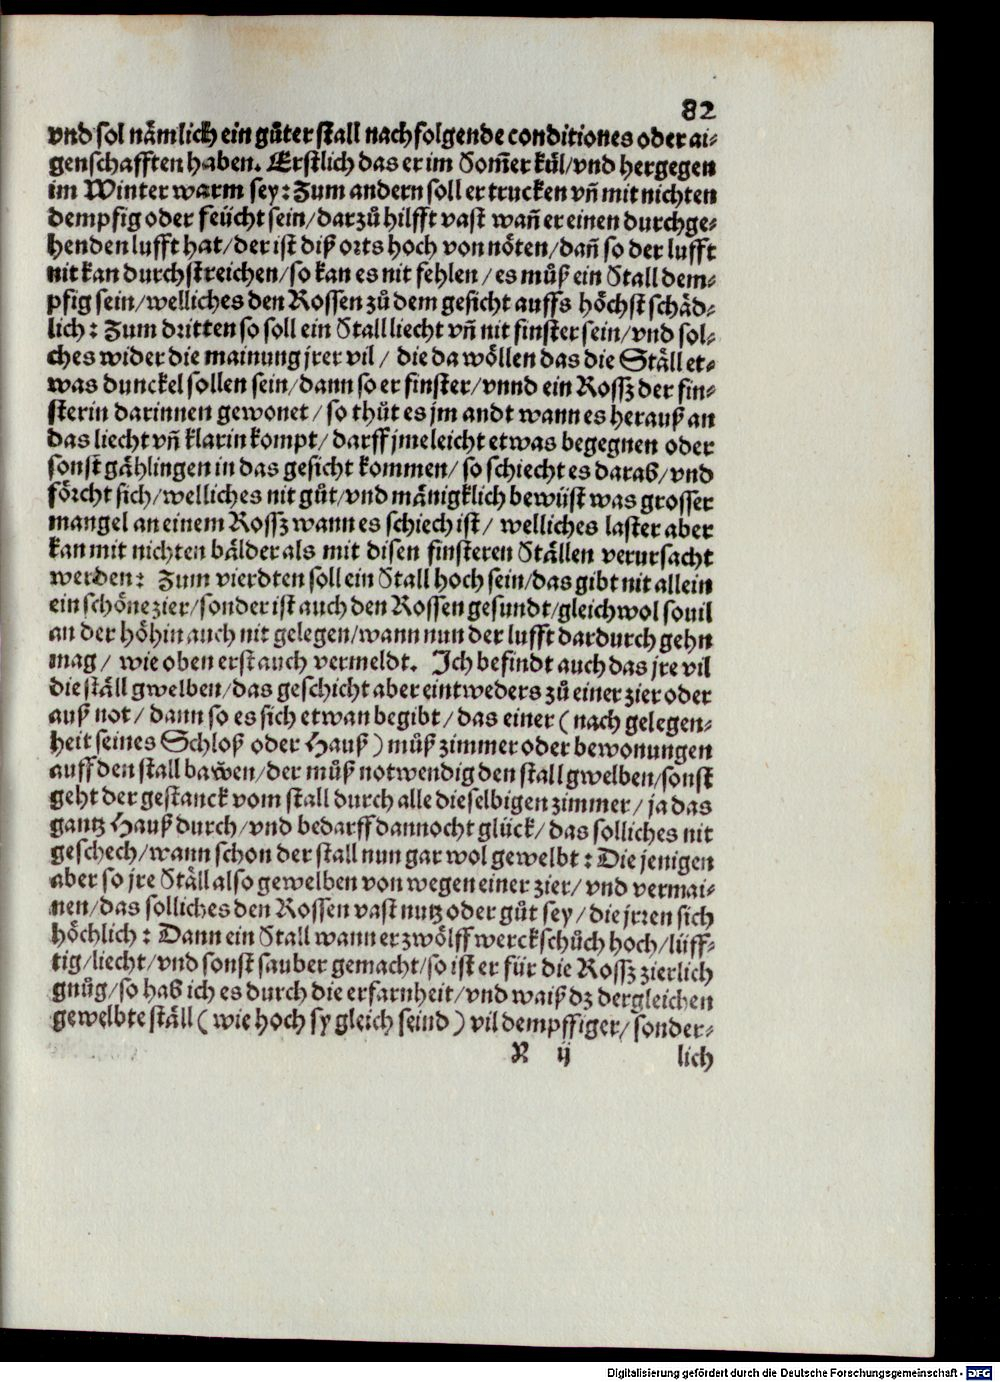 82
vnd sol nämlich ein gůter stall nachfolgende conditiones oder ai-
genschafften haben. Erstlich das er im Som̃er kül/vnd hergegen
im Winter warm sey: Zum andern soll er trucken vñ mit nichten
dempfig oder feücht sein/darzů hilfft vast wañ er einen durchge-
henden lufft hat/der ist diß orts hoch von nöten/dañ so der lufft
nit kan durchstreichen/so kan es nit fehlen/es můß ein Stall dem-
pfig sein/welliches den Rossen zů dem gesicht auffs höchst schäd-
lich: Zum dritten so soll ein Stall liecht vñ nit finster sein/vnd sol-
ches wider die mainung jrer vil/ die da wöllen das die Ställ et-
was dunckel sollen sein/dann so er finster/vnnd ein Rossz der fin-
sterin darinnen gewonet/so thůt es jm andt wann es herauß an
das liecht vñ klarin kompt/darff jme leicht etwas begegnen oder
sonst gählingen in das gesicht kommen/so schiecht es darab/vnd
förcht sich/welliches nit gůt/vnd mänigklich bewüst was grosser
mangel an einem Rossz wann es schiech ist/ welliches laster aber
kan mit nichten bälder als mit disen finsteren Ställen verursacht
werden: Zum vierdten soll ein Stall hoch sein/das gibt nit allein
ein schöne zier/sonder ist auch den Rossen gesundt/gleichwol souil
an der höhin auch nit gelegen/wann nun der lufft dardurch gehn
mag/ wie oben erst auch vermeldt. Ich befindt auch das jre vil
die ställ gwelben/das geschicht aber eintweders zů einer zier oder
auß not/dann so es sich etwan begibt/das einer (nach gelegen-
heit seines Schloß oder Hauß) můß zimmer oder bewonungen
auff den stall bawen/der můß notwendig den stall gwelben/sonst
geht der gestanck vom stall durch alle dieselbigen zimmer/ja das
gantz Hauß durch/vnd bedarff dannocht glück/das solliches nit
geschech/wann schon der stall nun gar wol gewelbt: Die jenigen
aber so jre Ställ also gewelben von wegen einer zier/vnd vermai-
nen/das solliches den Rossen vast nutz oder gůt sey/die jrren sich
höchlich: Dann ein Stall wann er zwölff werckschůch hoch/lüff-
tig/liecht/vnd sonst sauber gemacht/so ist er für die Rossz zierlich
gnůg/so hab ich es durch die erfarnheit/vnd waiß dz dergleichen
gewelbte ställ (wie hoch sy gleich seind) vil dempffiger/sonder-
R ij lich
Digitalisierung gefördert durch die Deutsche Forschungsgemeinschaft - DFG